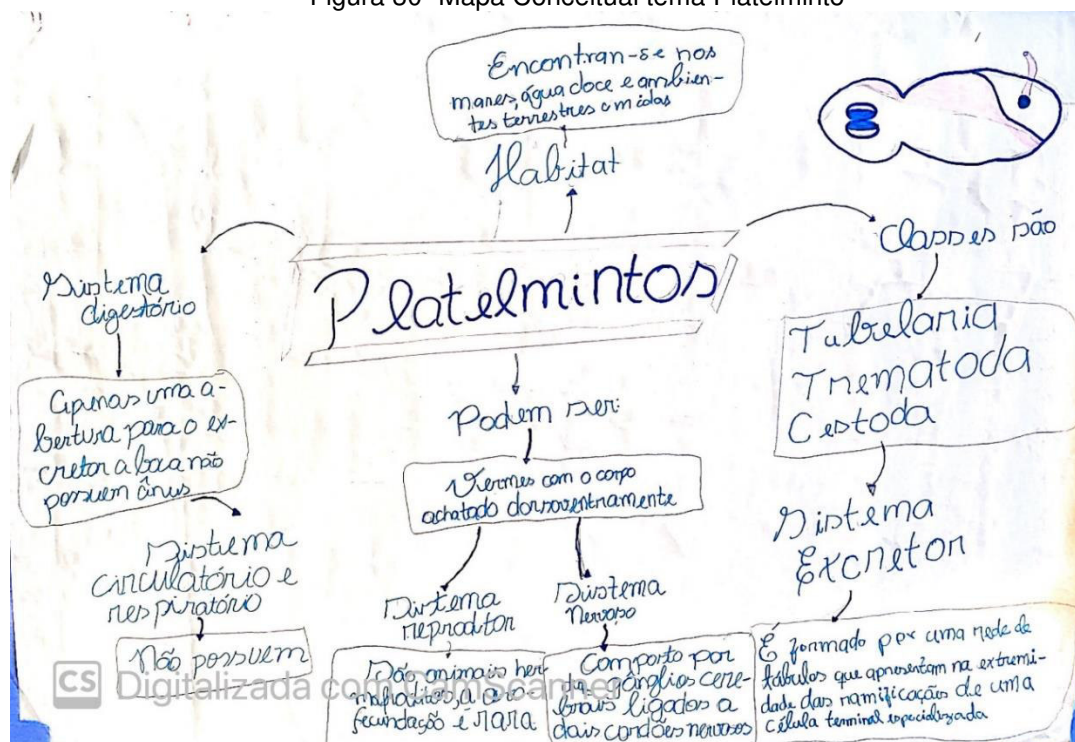 Figura 30- Mapa Conceitual tema Platelminto
Encontran-se nos
mares, água doce e ambien-
tes terrestres umidos
Habitat
Platelmintos
Sistema
digestório
Apenas uma a-
bertura para o ex-
cretor a boca não
possuem ânus
Sistema
circulatório e
respiratório
Não possuem
Podem ser:
Vermes com o corpo
achatado dorsoventramente
Sistema
reprodtor
São animais her
mafroditos, a
fecundação é rara
Sistema
Nervoso
Composto por
gânglios cere-
brais ligados a
dois cordões nervosos
Classes são
Tubelaria
Trematoda
Cestoda
Sistema
Excretor
É formado por uma rede de
túbulos que apresentam na extremi-
dade das ramificações de uma
célula terminal especializada
CS Digitalizada com CamScanner